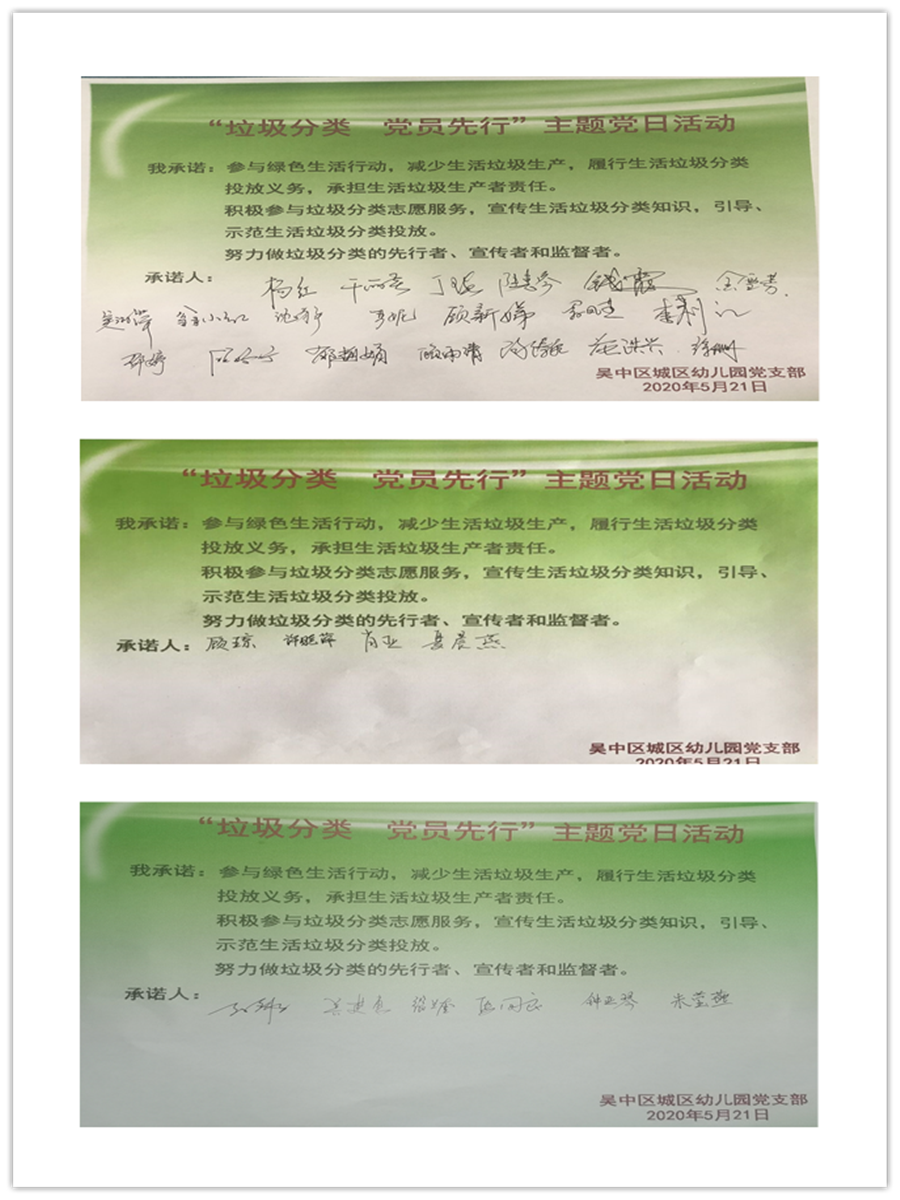 “垃圾分类 党员先行”主题党日活动
我承诺：参与绿色生活行动，减少生活垃圾生产，履行生活垃圾分类
投放义务，承担生活垃圾生产者责任。
积极参与垃圾分类志愿服务，宣传生活垃圾分类知识，引导、
示范生活垃圾分类投放。
努力做垃圾分类的先行者、宣传者和监督者。
承诺人：
杨红
顾新娣 李利
邵婷 郁超娟 顾雨清
吴中区城区幼儿园党支部
2020年5月21日
“垃圾分类 党员先行”主题党日活动
我承诺：参与绿色生活行动，减少生活垃圾生产，履行生活垃圾分类
投放义务，承担生活垃圾生产者责任。
积极参与垃圾分类志愿服务，宣传生活垃圾分类知识，引导、
示范生活垃圾分类投放。
努力做垃圾分类的先行者、宣传者和监督者。
承诺人：顾琼 许晓萍 肖亚 晨燕
吴中区城区幼儿园党支部
2020年5月21日
“垃圾分类 党员先行”主题党日活动
我承诺：参与绿色生活行动，减少生活垃圾生产，履行生活垃圾分类
投放义务，承担生活垃圾生产者责任。
积极参与垃圾分类志愿服务，宣传生活垃圾分类知识，引导、
示范生活垃圾分类投放。
努力做垃圾分类的先行者、宣传者和监督者。
承诺人： 钟亚琴 朱莹燕
吴中区城区幼儿园党支部
2020年5月21日